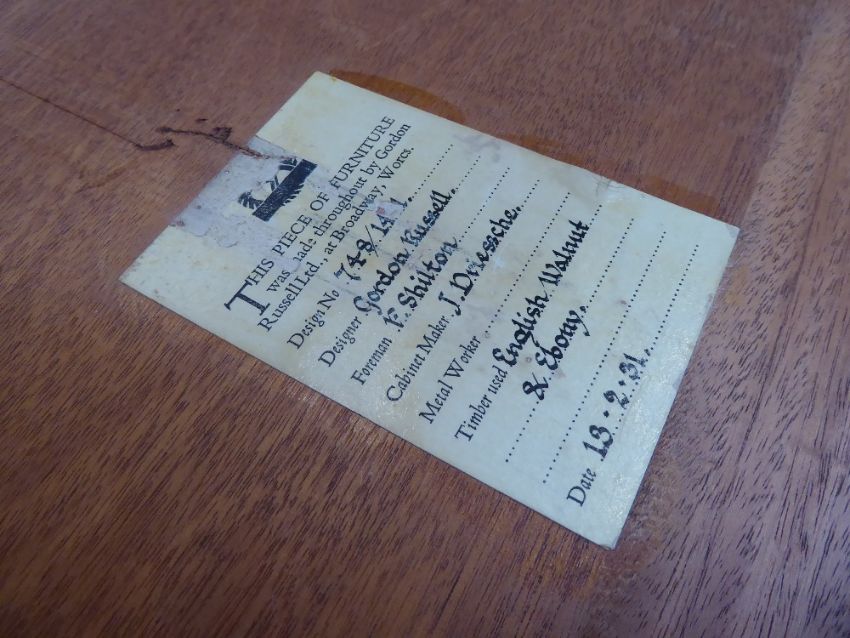 THIS PIECE OF FURNITURE
was made throughout by Gordon
Russell Ltd., at Broadway, Worcs.
Design No
Designer Gordon Russell.
Foreman F. Shilton
Cabinet Maker J. Driessche.
Metal Worker
Timber used English Walnut
& Ebony.
Date 13.2.31.